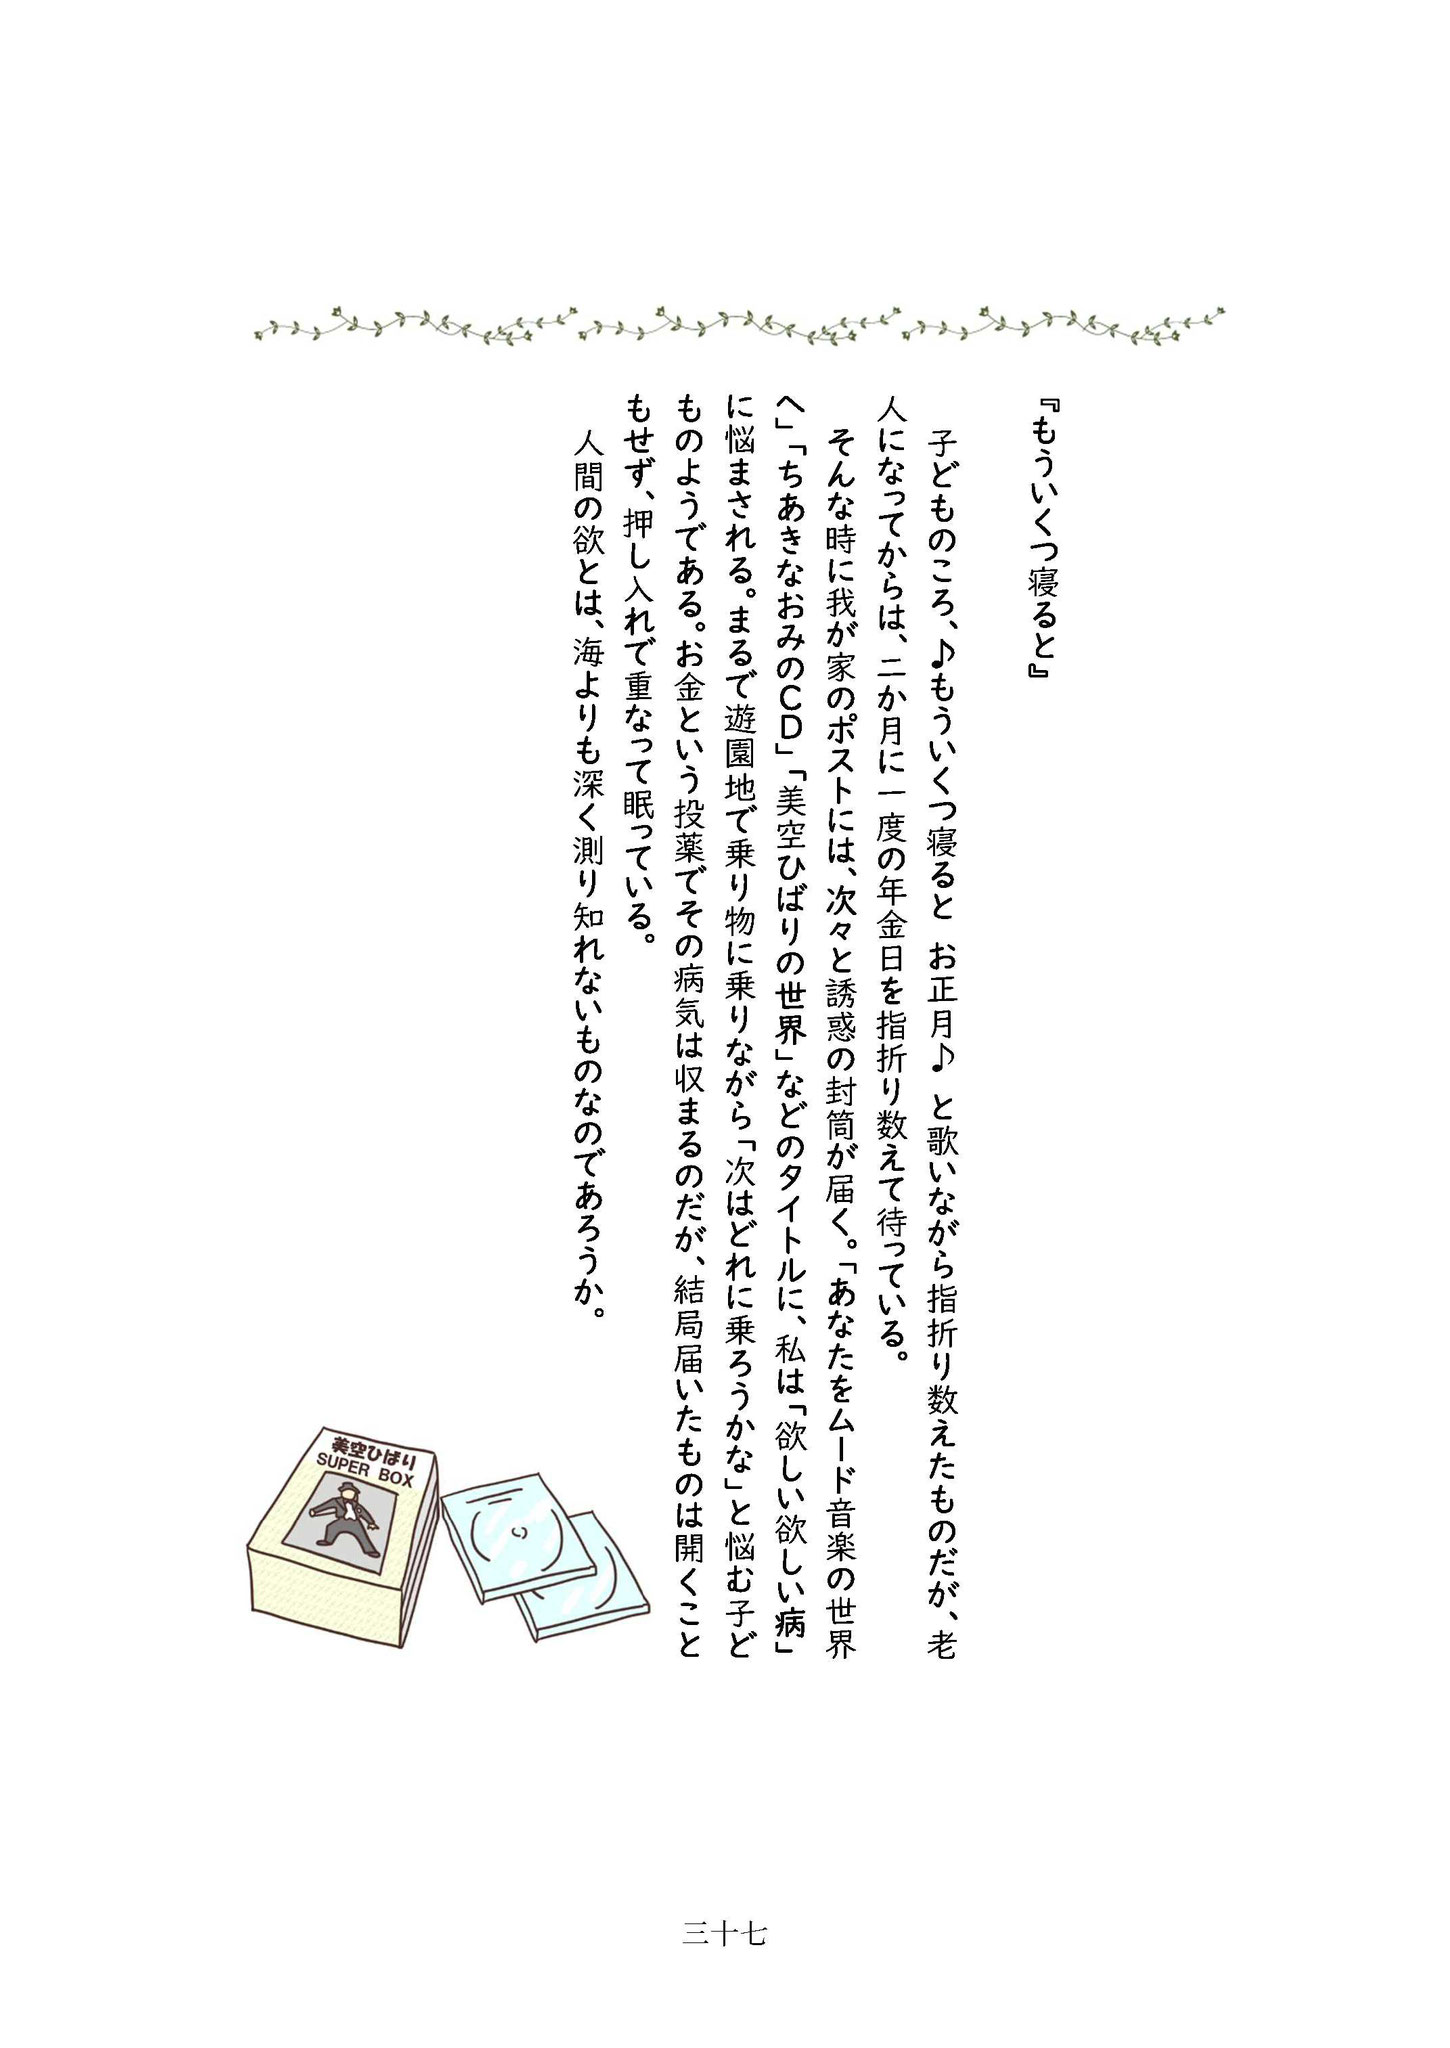 『もういくつ寝ると』
子どものころ、♪もういくつ寝ると お正月♪ と歌いながら指折り数えたものだが、老
人になってからは、二か月に一度の年金日を指折り数えて待っている。
そんな時に我が家のポストには、次々と誘惑の封筒が届く。「あなたをムード音楽の世界
へ」「ちあきなおみのCD」「美空ひばりの世界」などのタイトルに、私は「欲しい欲しい病」
に悩まされる。まるで遊園地で乗り物に乗りながら「次はどれに乗ろうかな」と悩む子ど
ものようである。お金という投薬でその病気は収まるのだが、結局届いたものは開くこと
もせず、押し入れで重なって眠っている。
人間の欲とは、海よりも深く測り知れないものなのであろうか。
美空ひばり
SUPER BOX
三十七